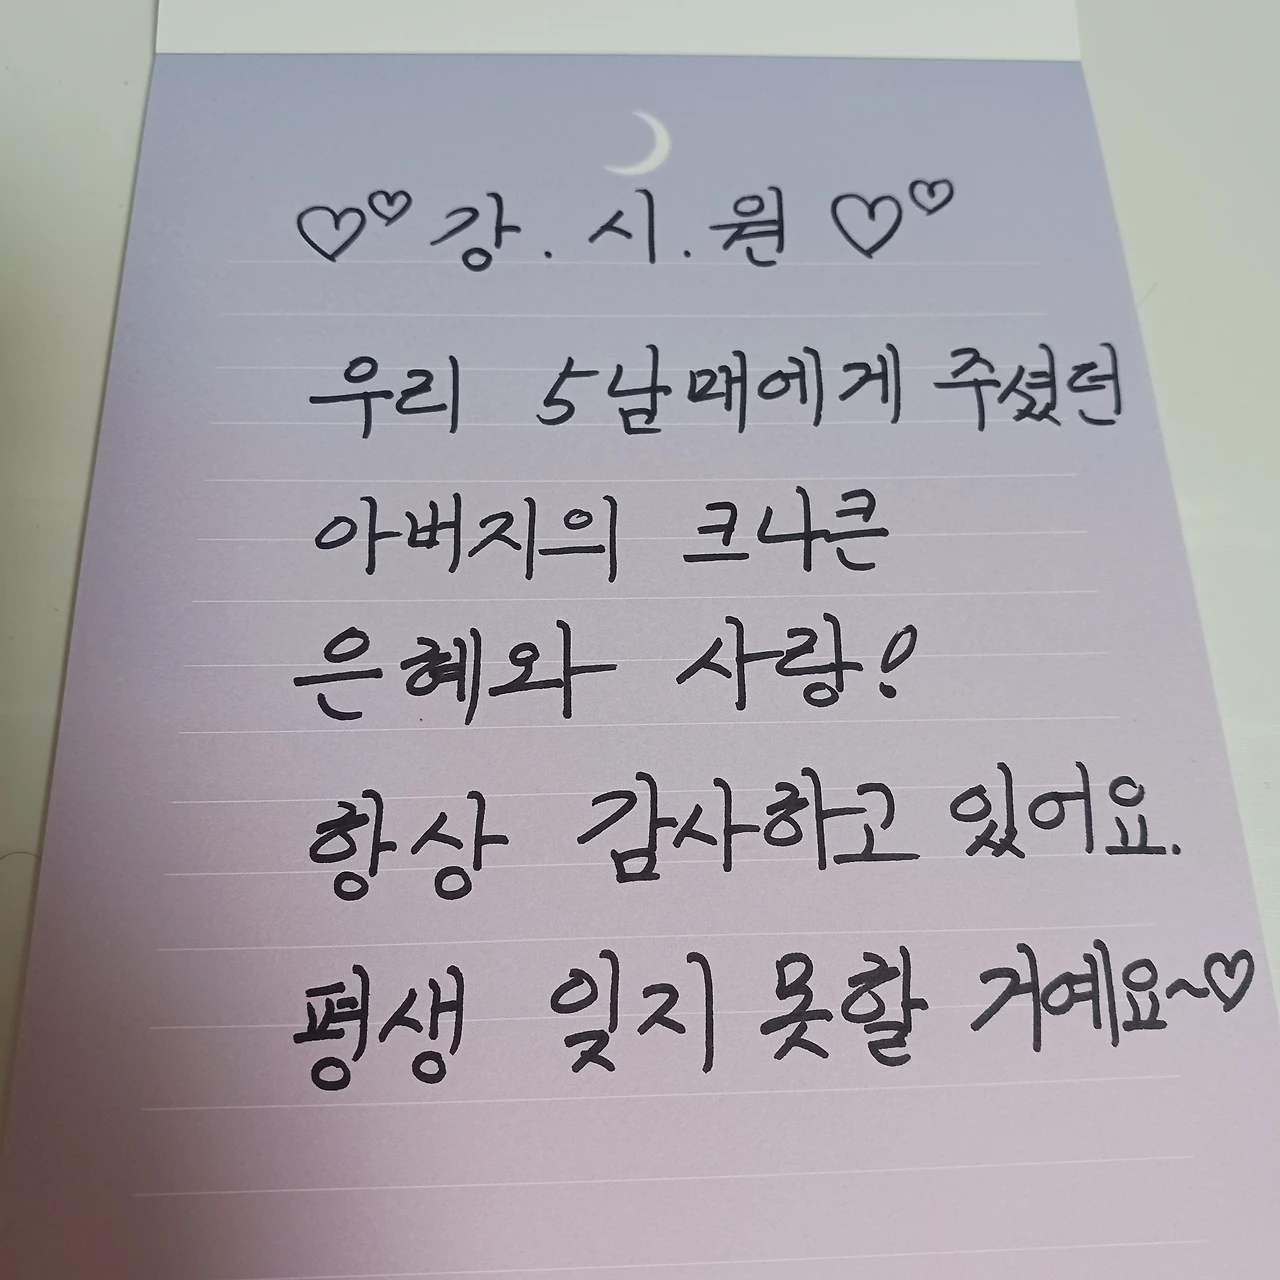 ♡♡ 강.시.원 ♡♡
우리 5남매에게 주셨던
아버지의 크나큰
은혜와 사랑!
항상 감사하고 있어요.
평생 잊지 못할 거예요~♡